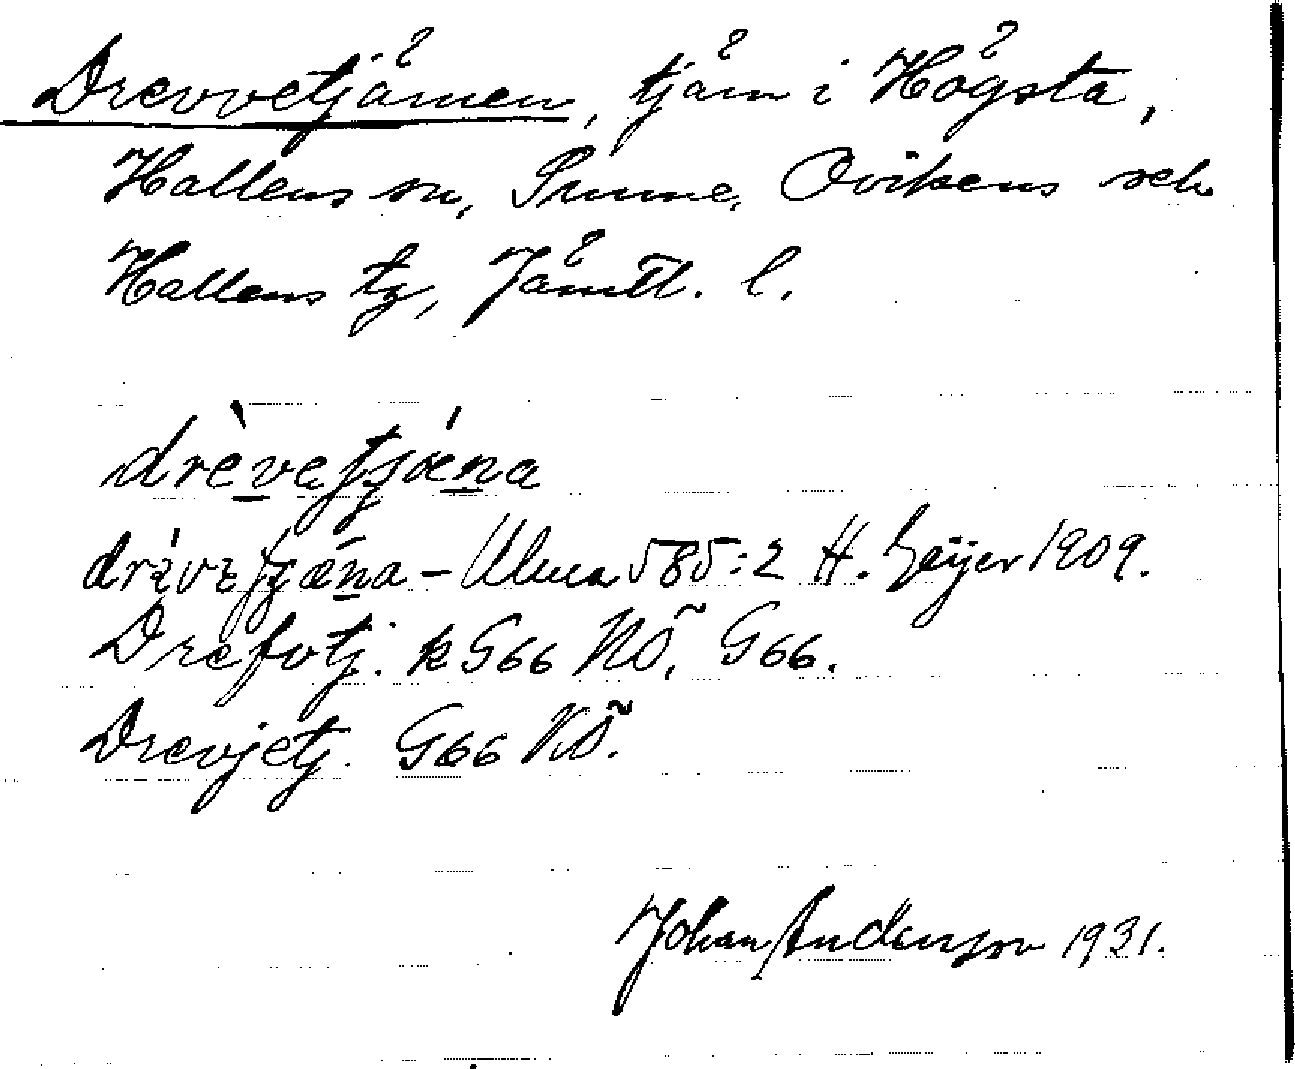 Drevvetjärnen, tjärn i Högsta,
Hallens sn, Sunne, Ovikens och
Hallens tg, Jämtl. l.
drèvetjǽna
drèvetjæna – Ulma 585:2 H. Geijer 1909.
Drefvtj. k G66 NÖ, G66.
Drevjetj. G66 NÖ.
Johan Anderson 1931.